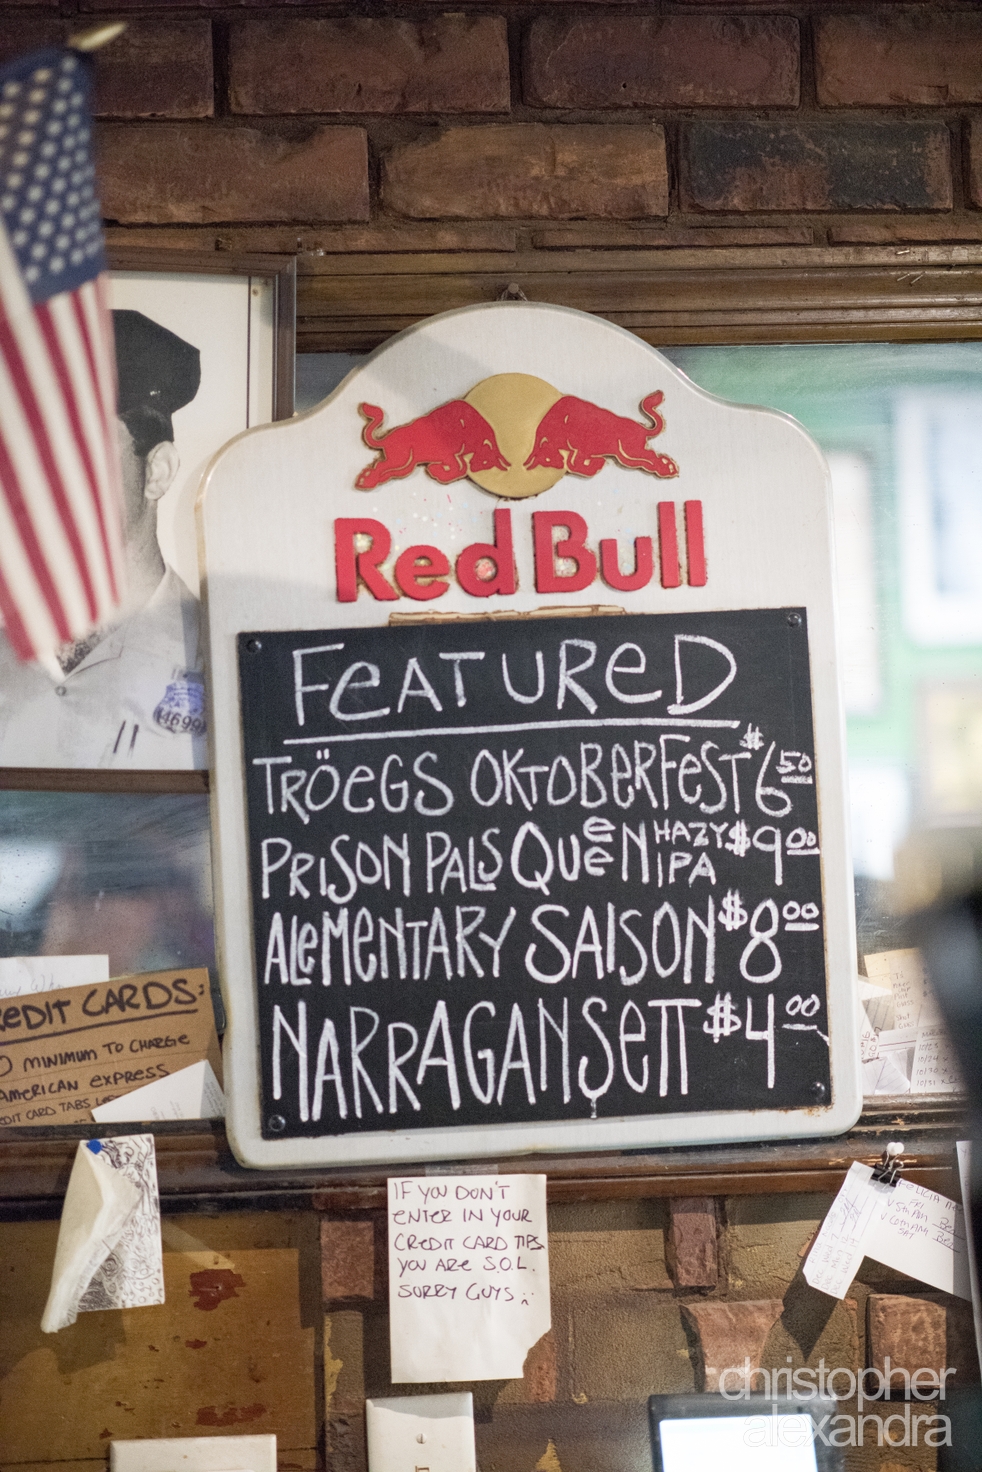 Red Bull
FeATUReD
TRÖeGS OKTOBeRFeST $6.50
PRISON PALS QUeeN HAZY IPA $9.00
ALeMeNTARY SAISON $8.00
NARRAGANSeTT $4.00
4699
CReDIT CARDS:
MINIMUM TO CHARGe
AMeRICAN eXPReSS
CARD TABS
IF YOU DON'T
eNTeR IN YOUR
CReDIT CARD TIPS
YOU ARe S.O.L.
SORRY GUYS :(
FeLICIA
FRI
SAT
christopher
alexandra